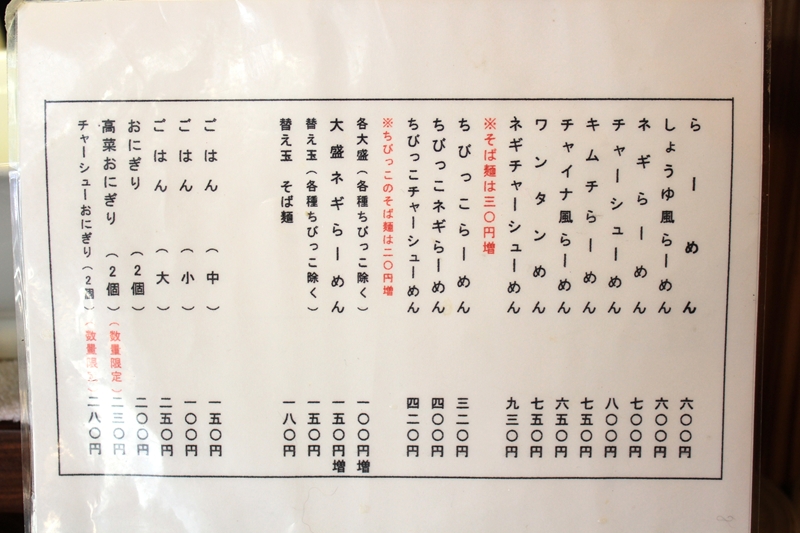 らーめん 六〇〇円
しょうゆ風らーめん 六〇〇円
ネギらーめん 七〇〇円
チャーシューめん 八〇〇円
キムチらーめん 七五〇円
チャイナ風らーめん 六五〇円
ワンタンめん 七五〇円
ネギチャーシューめん 九三〇円
※そば麺は三〇円増
ちびっこらーめん 三二〇円
ちびっこネギらーめん 四〇〇円
ちびっこチャーシューめん 四二〇円
※ちびっこのそば麺は二〇円増
各大盛(各種ちびっこ除く) 一〇〇円増
大盛ネギらーめん 一五〇円増
替え玉(各種ちびっこ除く) 一五〇円
替え玉 そば麺 一八〇円
ごはん (中) 一五〇円
ごはん (小) 一〇〇円
ごはん (大) 二五〇円
おにぎり (2個) 二〇〇円
高菜おにぎり (2個)(数量限定) 二三〇円
チャーシューおにぎり(2個)(数量限定) 二八〇円